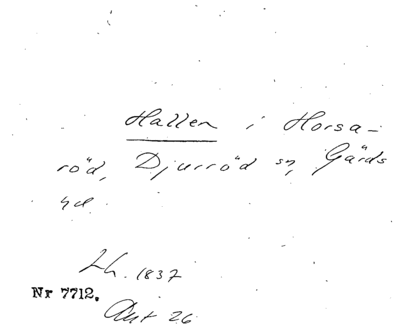 Hallen i Horsa-
röd, Djurröd sn, Gärds
hd.
Lh. 1837
Nr 7712.
Akt 26